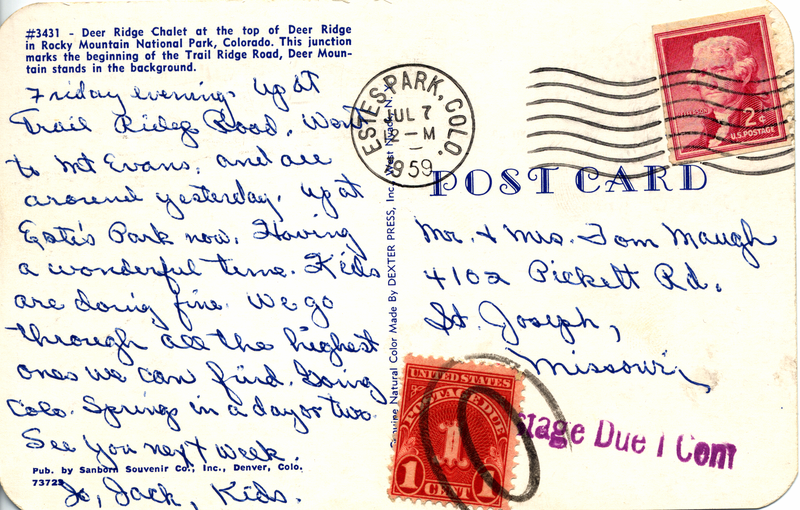 #3431 - Deer Ridge Chalet at the top of Deer Ridge
in Rocky Mountain National Park, Colorado. This junction
marks the beginning of the Trail Ridge Road, Deer Moun-
tain stands in the background.
Friday evening. Up at
Trail Ridge Road. Went
to Mt Evans, and all
around yesterday. Up at
Estis Park now. Having
a wonderful time. Kids
are doing fine. We go
through all the highest
ones we can find. Going
Colo. Springs in a day or two.
See You next week.
Jo, Jack, Kids.
Pub. by Sanborn Souvenir Co., Inc., Denver, Colo.
73722
Genuine Natural Color Made By DEXTER PRESS, Inc., West Nyack, N. Y.
ESTES PARK, COLO.
JUL 7
-M
1959
2¢
U.S. POSTAGE
POST CARD
Mr. & Mrs. Tom Maugh
4102 Pickett Rd.
St. Joseph,
Missouri
UNITED STATES
POSTAGE DUE
1 CENT 1
stage Due 1 Cent